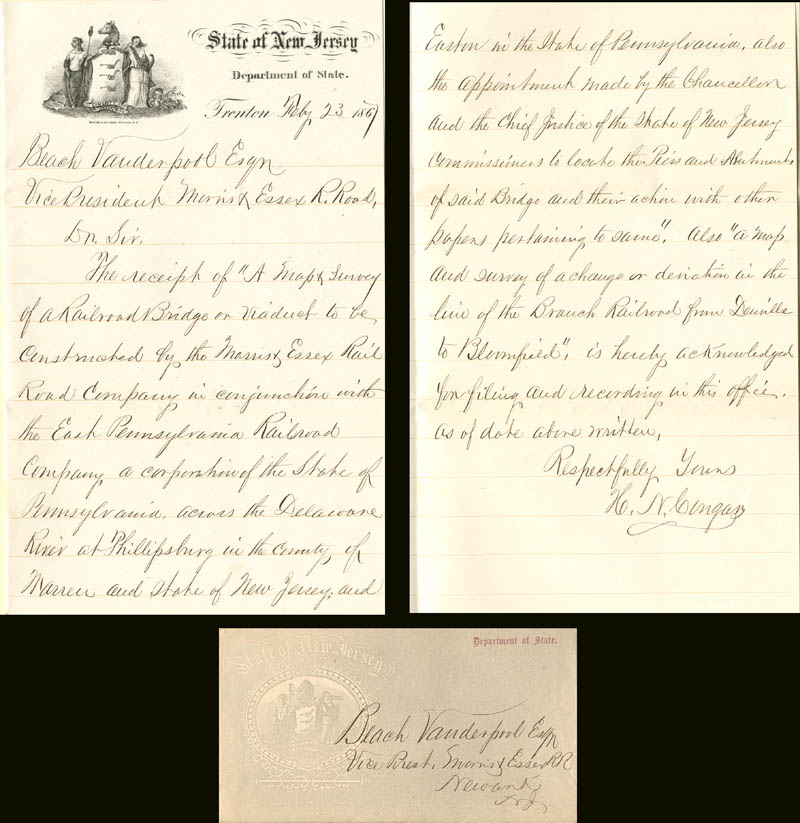 State of New Jersey
Department of State.
Trenton Feby 23 1867
Beach Vanderpool Esqr
Vice President Morris & Essex R. Road,
Dr. Sir.
The receipt of "A Map & Survey
of a Railroad Bridge or Viaduct to be
Constructed by the Morris & Essex Rail
Road Company in conjunction with
the East Pennsylvania Railroad
Company a corporation of the State of
Pennsylvania, across the Delaware
River at Phillipsburg in the county of
Warren and State of New Jersey, and
Easton in the State of Pennsylvania, also
the appointment made by the Chancellor
and the Chief Justice of the State of New Jersey
Commissioners to locate the Piers and Abutments
of said Bridge and their action with other
papers pertaining to same". Also "a map
and survey of a change or deviation in the
line of the Branch Railroad from Denville
to Bloomfield", is hereby acknowledged
for filing and recording in this office.
as of date above written,
Respectfully Yours
H. N. Congar
State of New Jersey
Department of State.
Beach Vanderpool Esqr
Vice Prest. Morris & Essex RR
Newark
N J